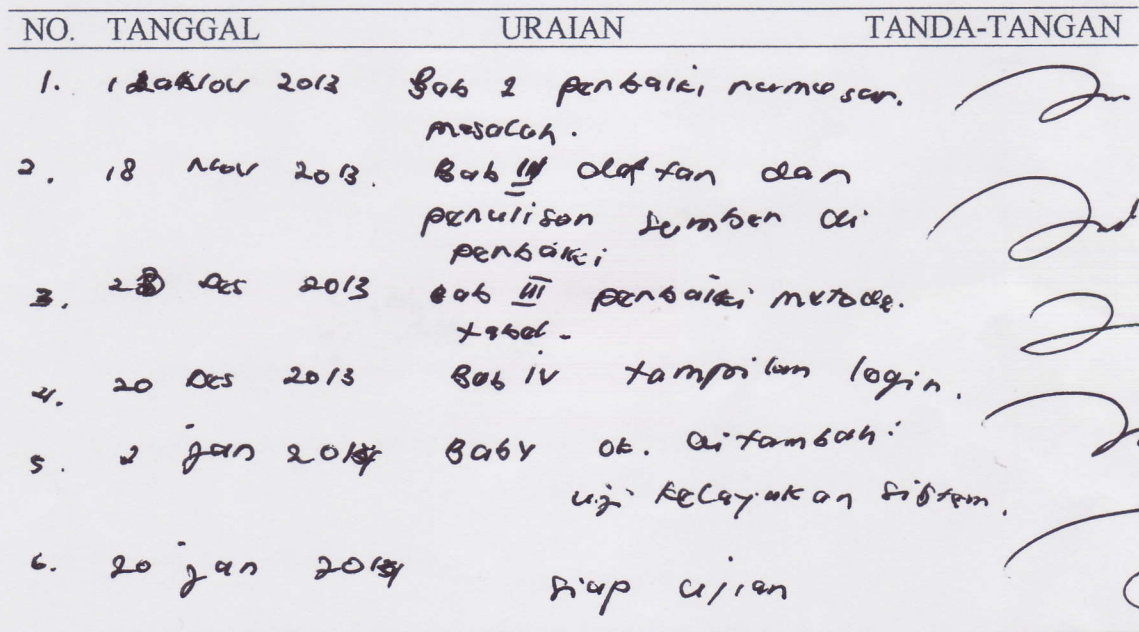 NO. TANGGAL URAIAN TANDA-TANGAN
1. 2013 Bab 1 perbaiki rumusan.
masalah.
2. 18 Nov 2013. Bab II daftar dan
penulisan sumber di
perbaiki
3. Des 2013 Bab III perbaiki metode.
tabel.
4. 20 Des 2013 Bab IV tampilan login.
5. 2 jan 2014 Bab V ok. ditambah:
uji kelayakan sistem.
6. 20 jan 2014 siap ujian